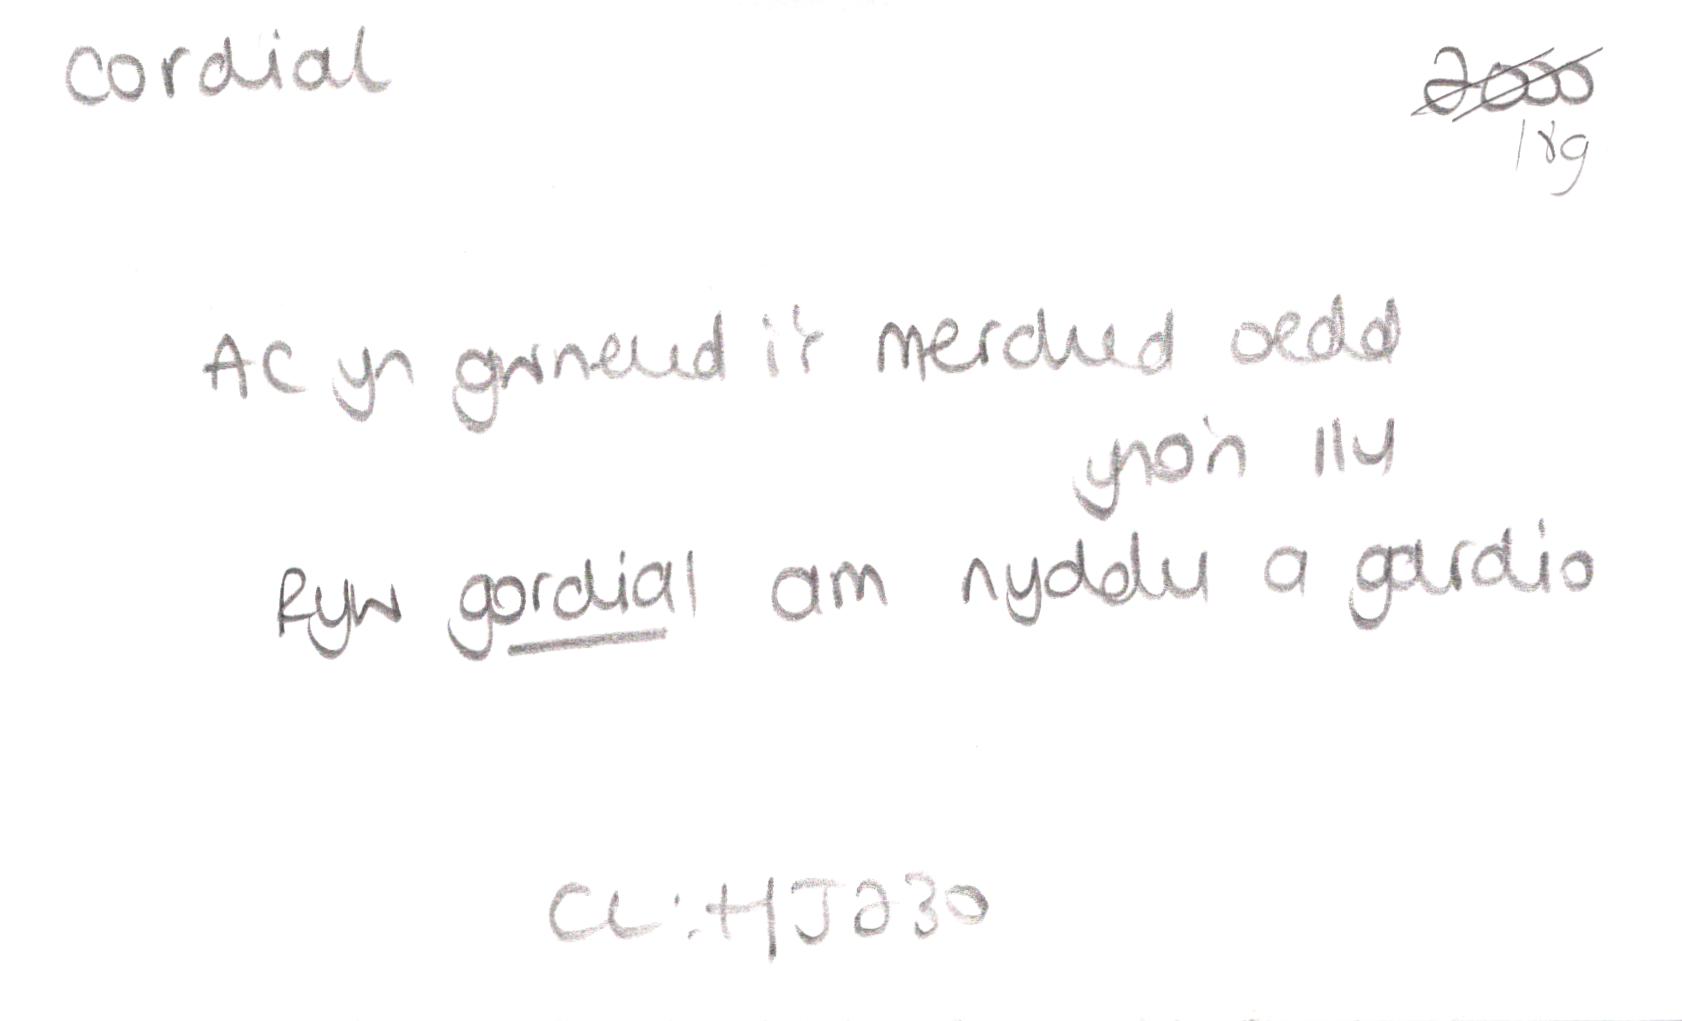 cordial
2000
18g
AC yn gwneud i'r merched oedd
yno'n llu
Ryw gordial am nyddu a gardio
CL:HJ230